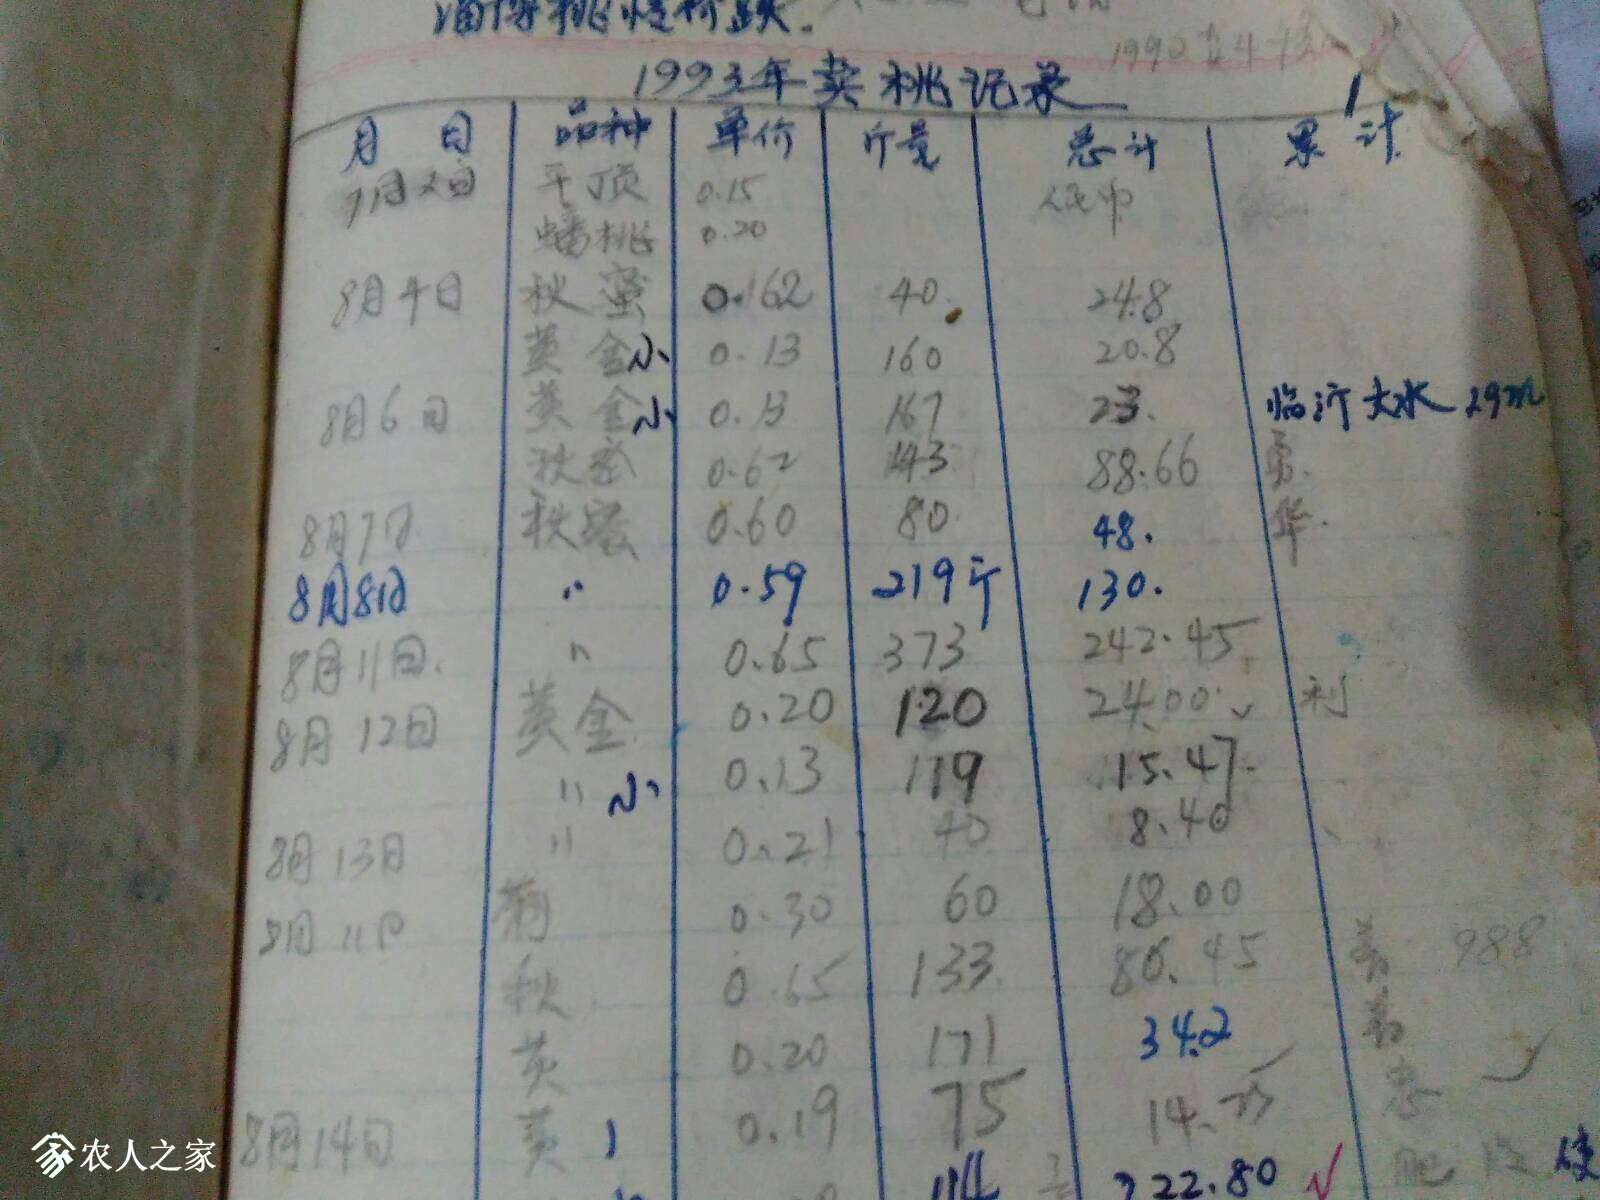 淄博桃怪价跌.
1993年卖桃记录
月 日 品种 单价 斤量 总计 累计
7月2日 平顶 0.15 人民币
蟠桃 0.20
8月4日 秋蜜 0.162 40. 24.8
黄金小 0.13 160 20.8
8月6日 黄金小 0.13 167 23. 临沂大水 29m
秋蜜 0.62 143 88.66
8月7日 秋蜜 0.60 80 48. 华.
8月8日 〃 0.59 219斤 130.
8月11日. 〃 0.65 373 242.45
8月12日 黄金 0.20 120 24.00 利
〃 小 0.13 119 15.47
8月13日 〃 0.21 40 8.40
8月11日 0.30 60 18.00
秋 0.65 133 86.45 988
黄 0.20 171 34.2
8月14日 黄 0.19 75 14.
114 222.80 √
农人之家